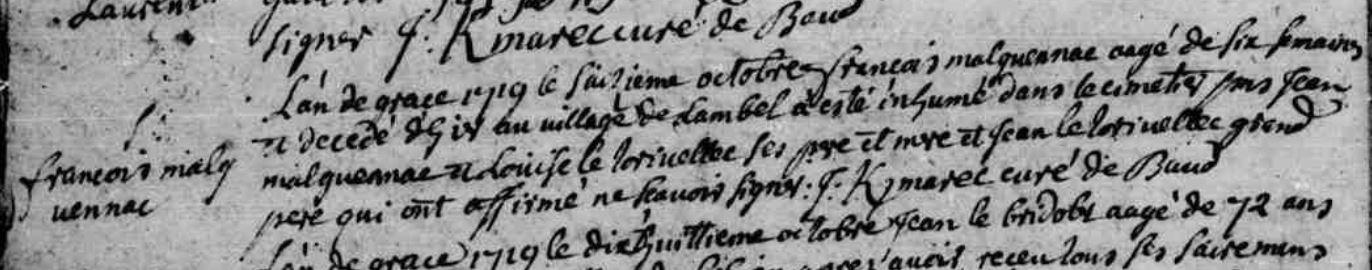 Laurent
signer J. Kmarec curé de Baud
L'an de grace 1719 le seizieme octobre françois malquennac aagé de six semaines
et decedé d'hier au village de Lambel a esté inhumé dans le cimetier pns Jean
françois malq
uennac
malquennac et Louise le lorivellec ses pere et mere et Jean le lorivellec grend
pere qui ont affirmé ne scavoir signer: J. Kmarec curé de Baud
L'an de grace 1719 le dixhuittieme octobre Jean le bridobt aagé de 72 ans
avoir receu tous ses sacremans